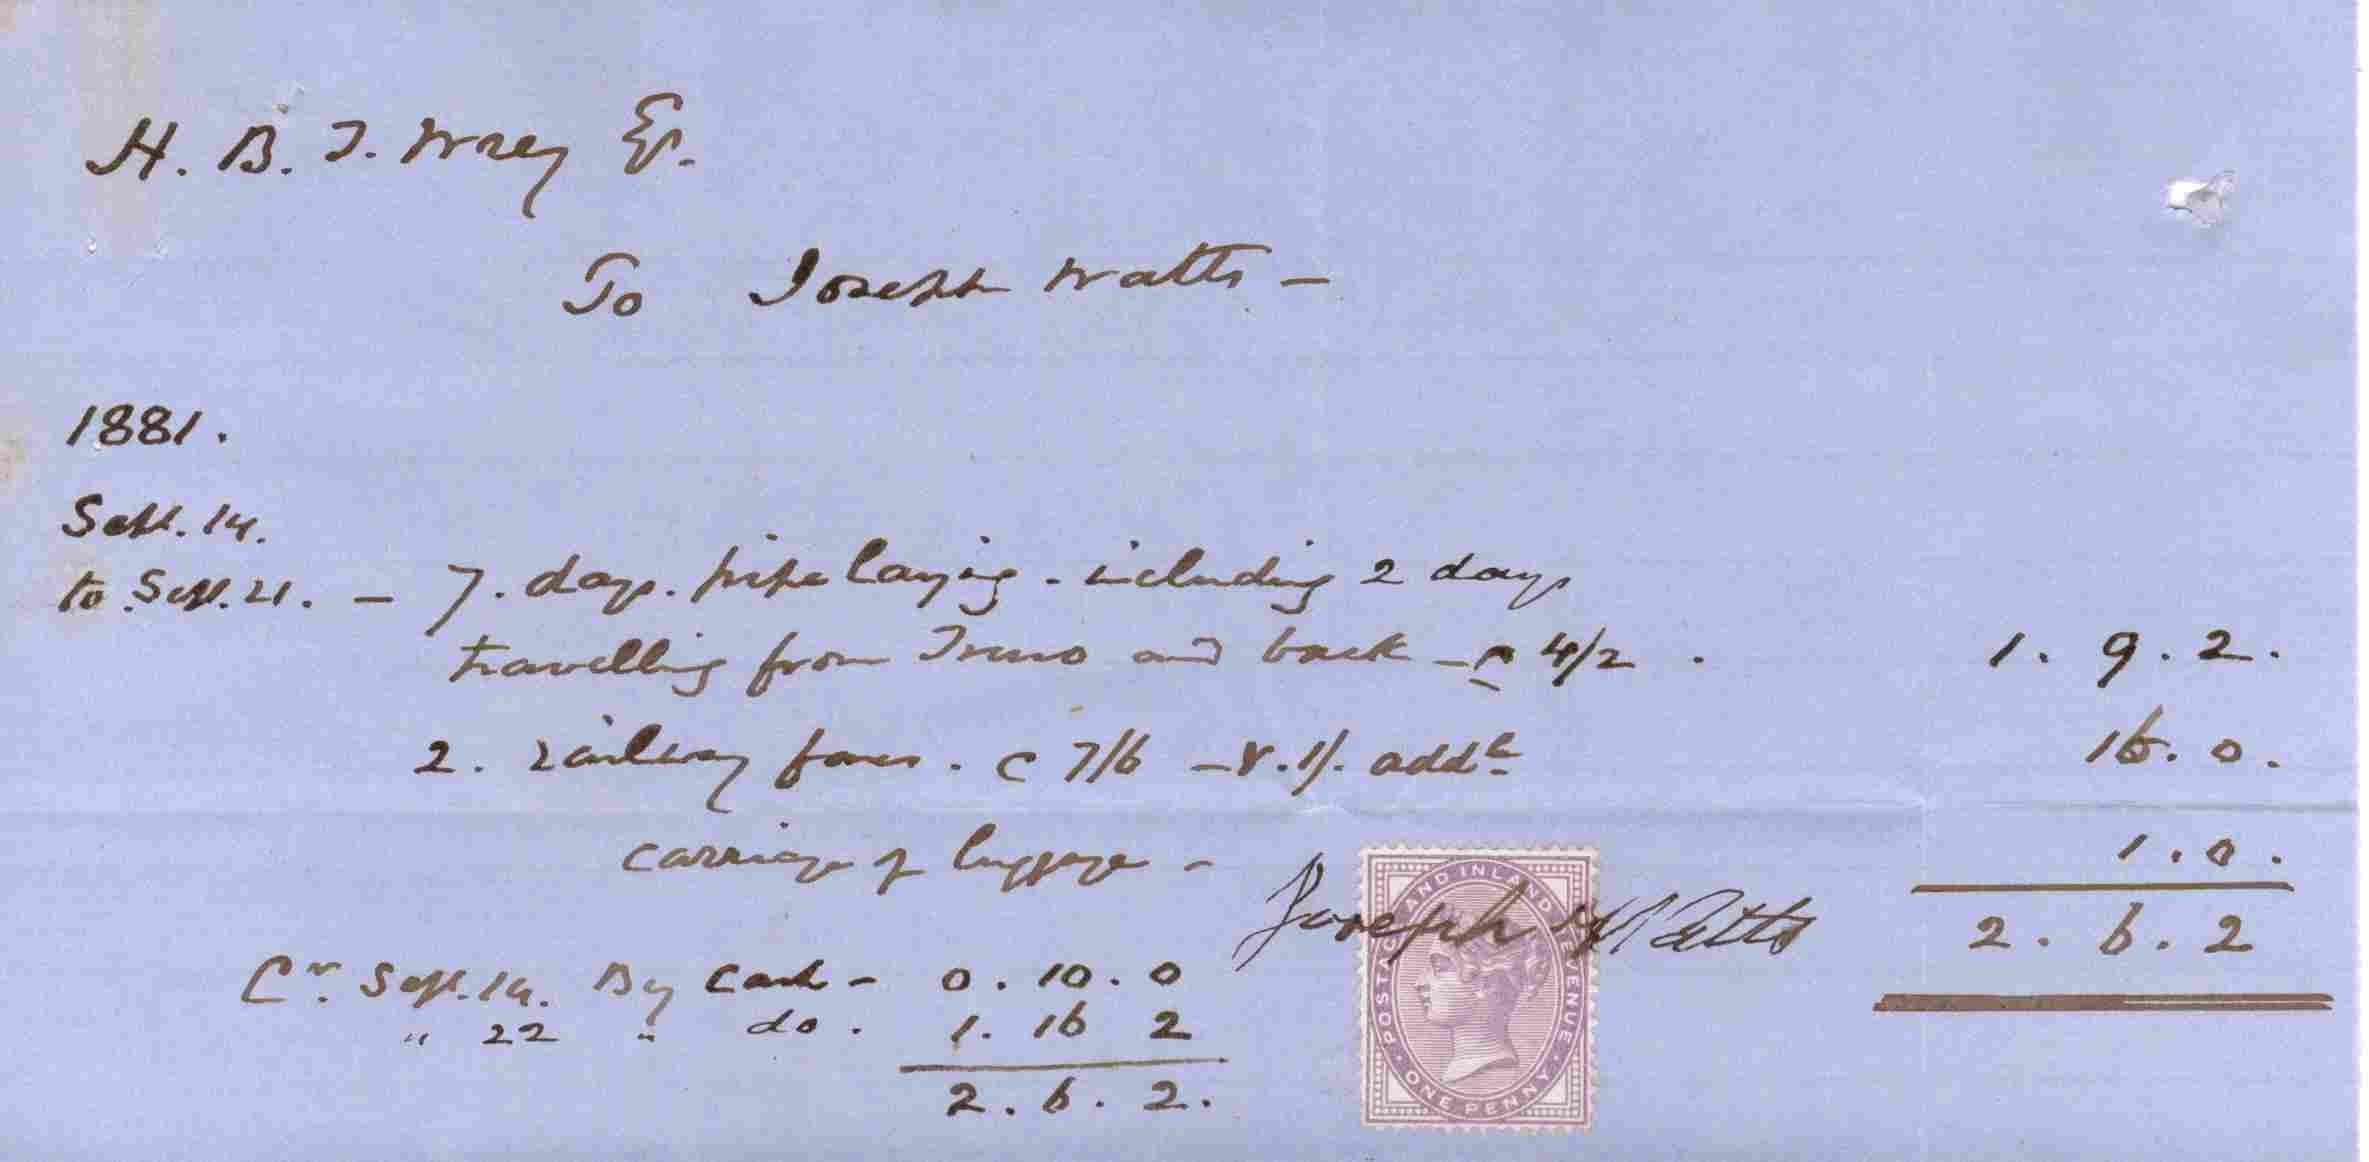 H. B. T. Wrey Esq.
To Joseph Watts —
1881.
Sept. 14.
to Sept. 21. — 7. days. pipe laying - including 2 days
travelling from Truro and back — @ 4/2 . 1. 9. 2.
2. railway fares. @ 7/6 — & 1/. addl 16. 0.
carriage of luggage — 1. 0.
Joseph Watts
2. 6. 2
Cr. Sept. 14. By Cash — 0. 10. 0
" 22 " do. 1. 16 2
2. 6. 2.
POSTAGE AND INLAND REVENUE
ONE PENNY